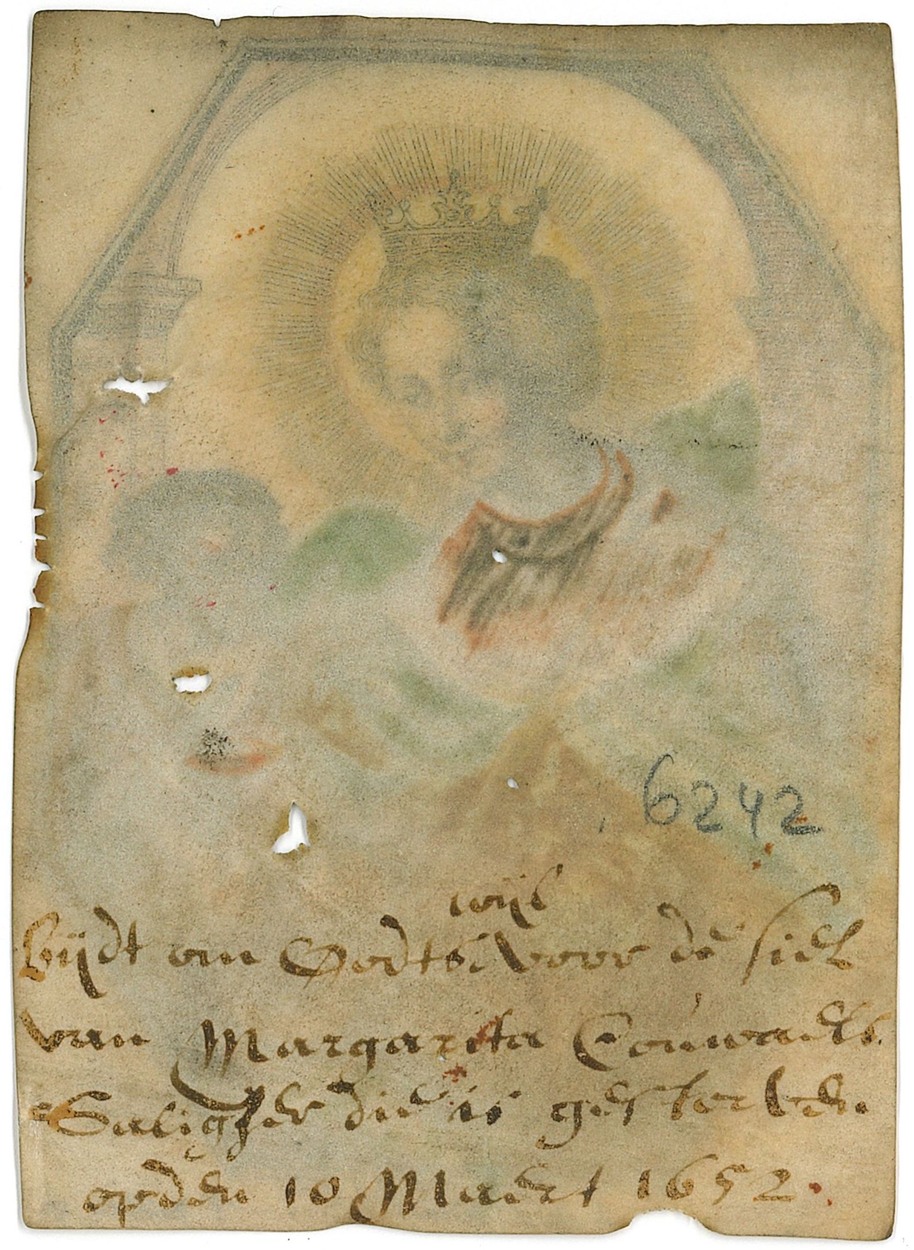 6242
wijl
bijdt om Godts voor de siel
van Margarita
Saligher die is gestorben
opden 10 Maert 1652.